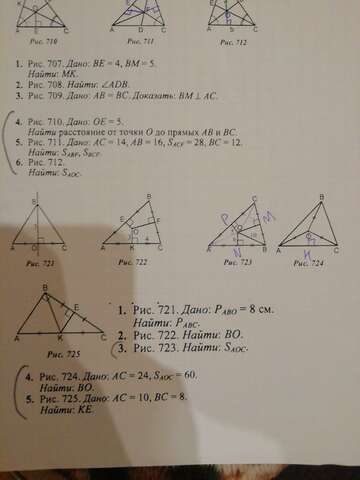 Рис. 710
Рис. 711
Рис. 712
1. Рис. 707. Дано: BE = 4, BM = 5.
Найти: MK.
2. Рис. 708. Найти: ∠ADB.
3. Рис. 709. Дано: AB = BC. Доказать: BM ⊥ AC.
4. Рис. 710. Дано: OE = 5.
Найти расстояние от точки O до прямых AB и BC.
5. Рис. 711. Дано: AC = 14, AB = 16, S_ACF = 28, BC = 12.
Найти: S_ABF, S_BCF.
6. Рис. 712.
Найти: S_AOC.
Рис. 721
Рис. 722
Рис. 723
Рис. 724
Рис. 725
1. Рис. 721. Дано: P_ABO = 8 см.
Найти: P_ABC.
2. Рис. 722. Найти: BO.
3. Рис. 723. Найти: S_AOC.
4. Рис. 724. Дано: AC = 24, S_AOC = 60.
Найти: BO.
5. Рис. 725. Дано: AC = 10, BC = 8.
Найти: KE.